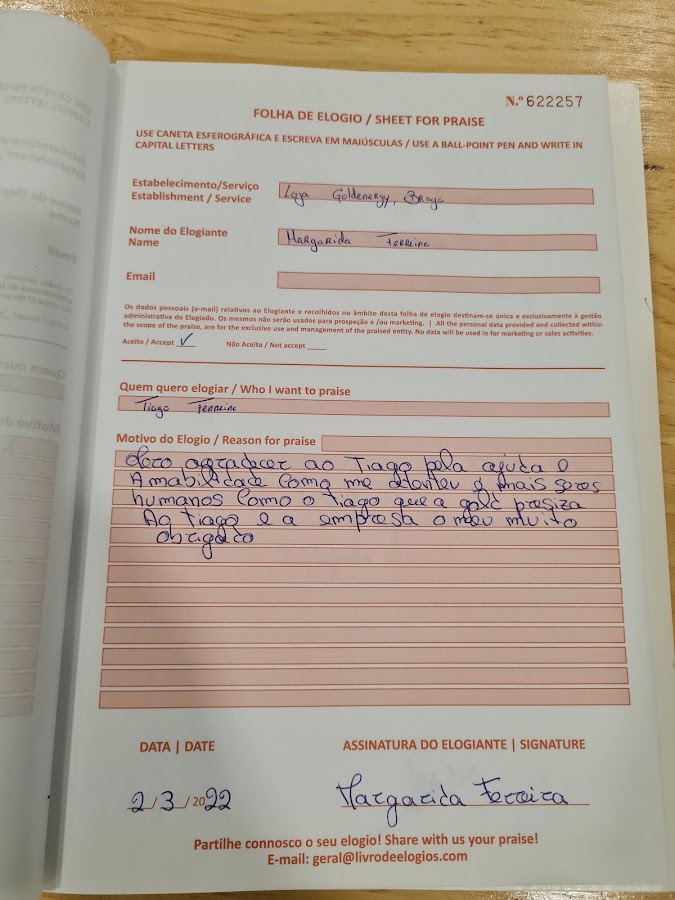 N.º 622257
FOLHA DE ELOGIO / SHEET FOR PRAISE
USE CANETA ESFEROGRÁFICA E ESCREVA EM MAIÚSCULAS / USE A BALL-POINT PEN AND WRITE IN
CAPITAL LETTERS
Estabelecimento/Serviço
Establishment / Service
Loja Goldenergy, Braga
Nome do Elogiante
Name
Margarida Ferreira
Email
Os dados pessoais (e-mail) relativos ao Elogiante e recolhidos no âmbito desta folha de elogio destinam-se única e exclusivamente à gestão
administrativa do Elogiado. Os mesmos não serão usados para prospeção e /ou marketing. | All the personal data provided and collected within
the scope of the praise, are for the exclusive use and management of the praised entity. No data will be used for marketing or sales activities.
Aceito / Accept ✓ Não Aceito / Not accept ____
Quem quero elogiar / Who I want to praise
Tiago Ferreira
Motivo do Elogio / Reason for praise
agradecer ao Tiago pela ajuda e
Amabilidade como me é mais seres
humanos como o Tiago que a gold presiza
Ao Tiago e a empresa o meu muito
obrigado
DATA | DATE
ASSINATURA DO ELOGIANTE | SIGNATURE
2/3/2022
Margarida Ferreira
Partilhe connosco o seu elogio! Share with us your praise!
E-mail: geral@livrodeelogios.com